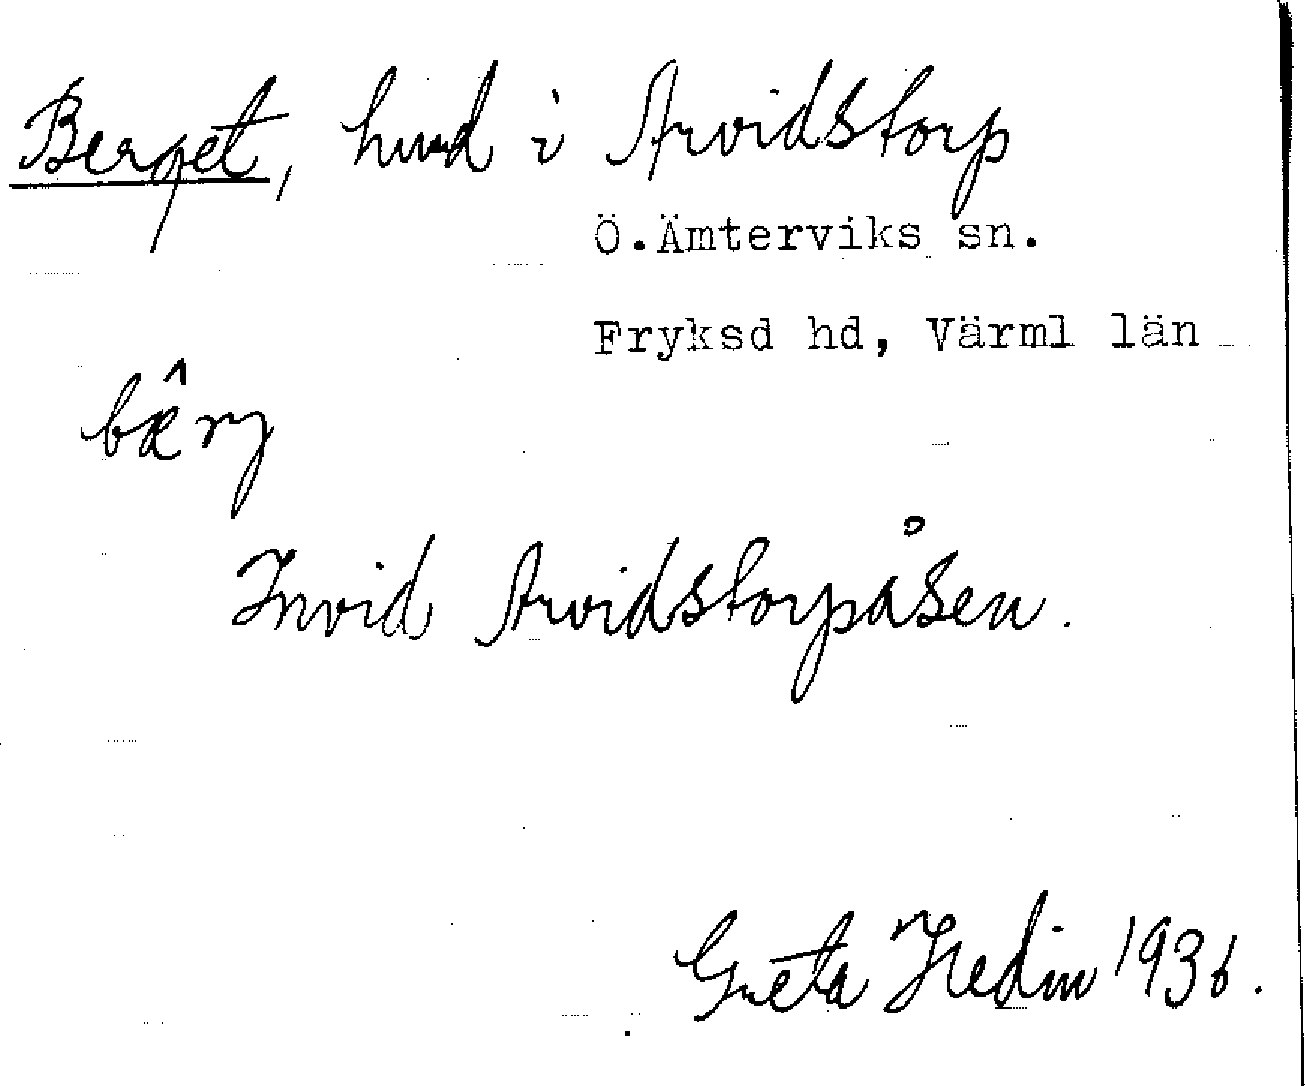 Berget, hmd i Arvidstorp
Ö.Ämterviks sn.
Fryksd hd, Värml län
bærj
Invid Arvidstorpåsen.
Greta Hedin 1936.